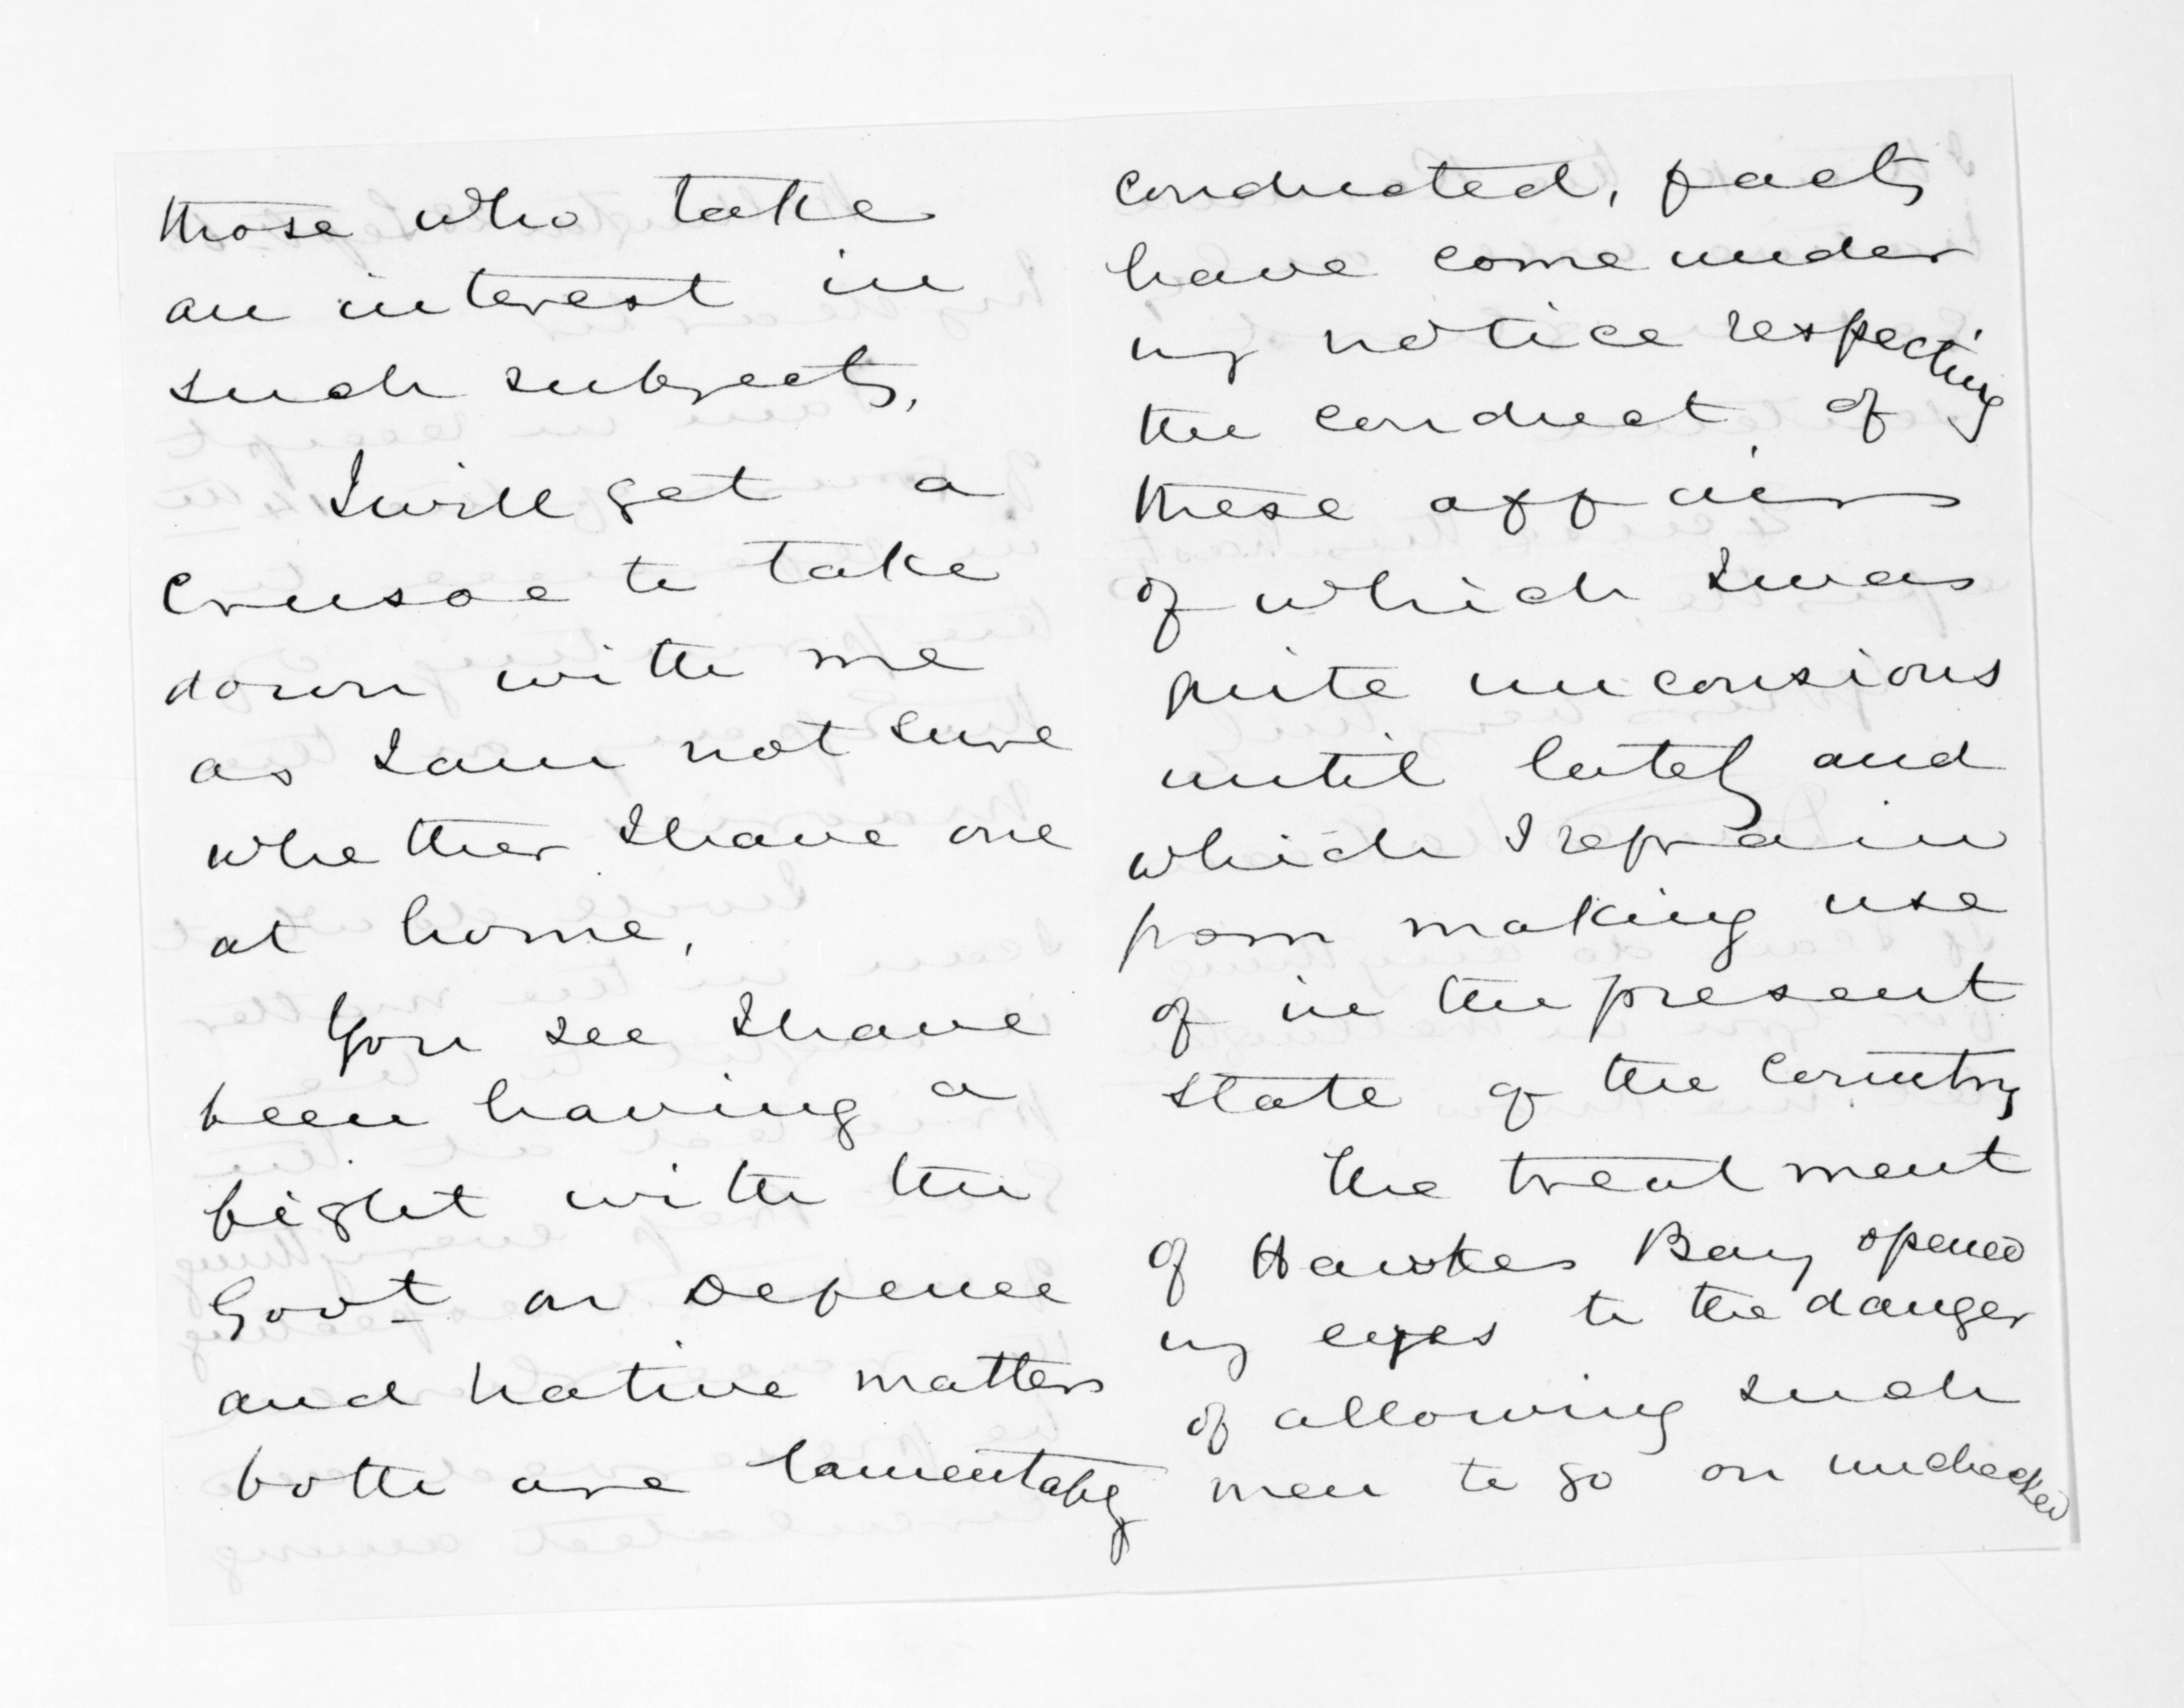 those who take
an interest in
such subjects,
I will get a
Crusoe to take
down with me
as I am not sure
whether I have one
at home,
You see I have
been having a
fight with the
Govt on Defence
and native matters
both are lamentably
conducted, facts
have come under
my notice respecting
the conduct of
these affairs
of which I was
quite unconsious
until lately and
which I refrain
from making use
of in the present
state of the Country
The treatment
of Hawkes Bay opened
my eyes to the danger
of allowing such
men to go on unchecked